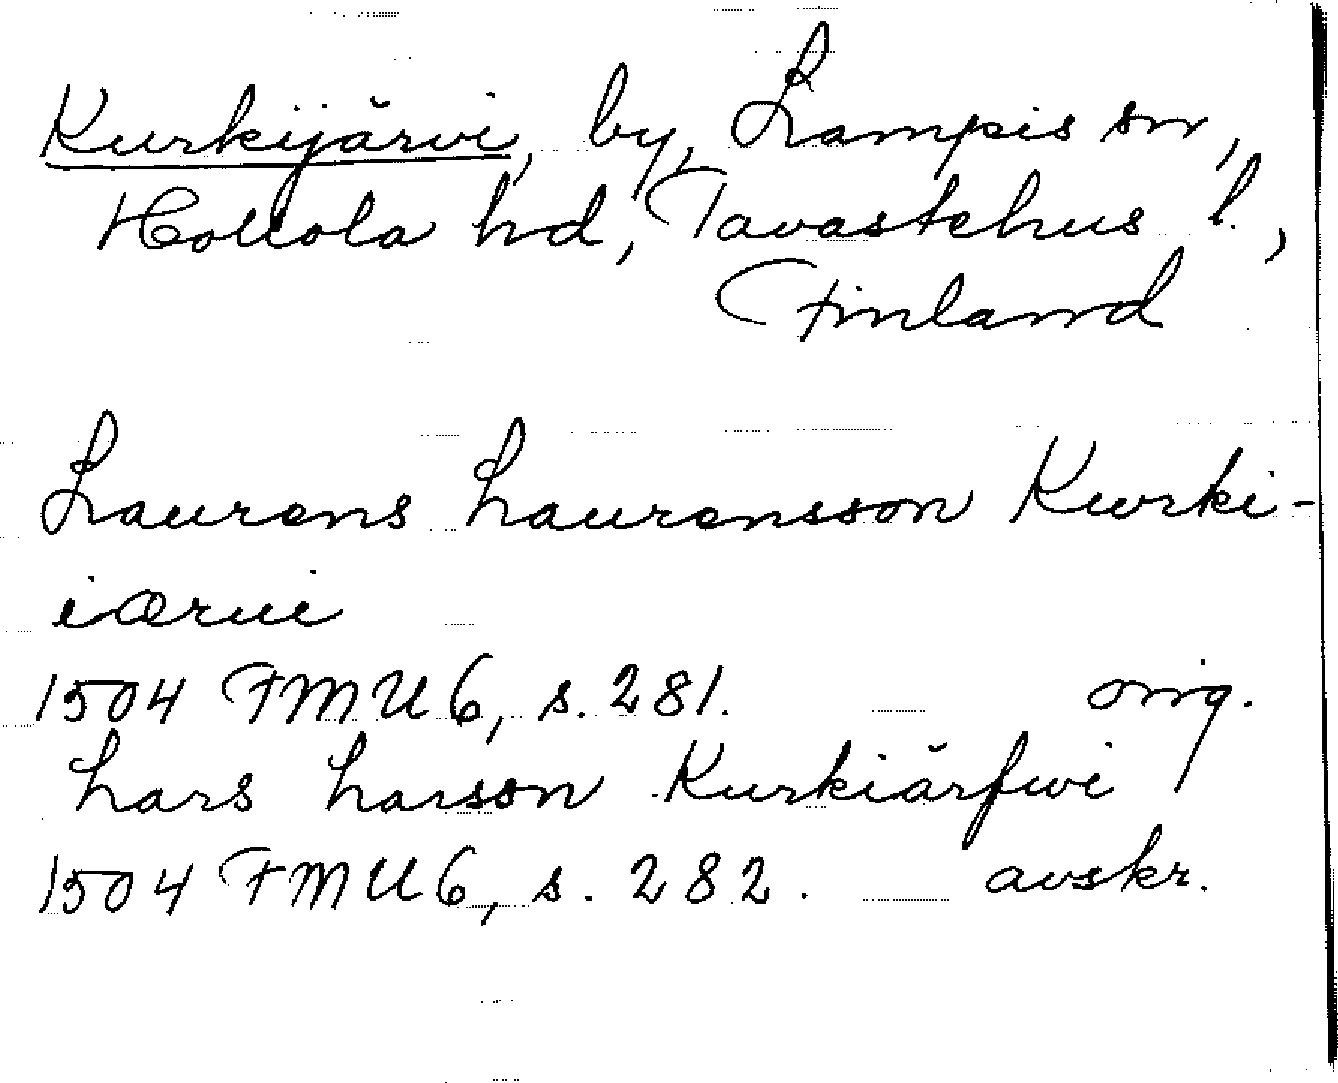 Kurkijärvi, by, Lampis sn,
Hollola hd, Tavastehus l.,
Finland
Laurens Laurensson Kurki-
iærui
1504 FMU 6, s. 281. orig.
Lars Larsson Kurkiärfwi
1504 FMU 6, s. 282. avskr.